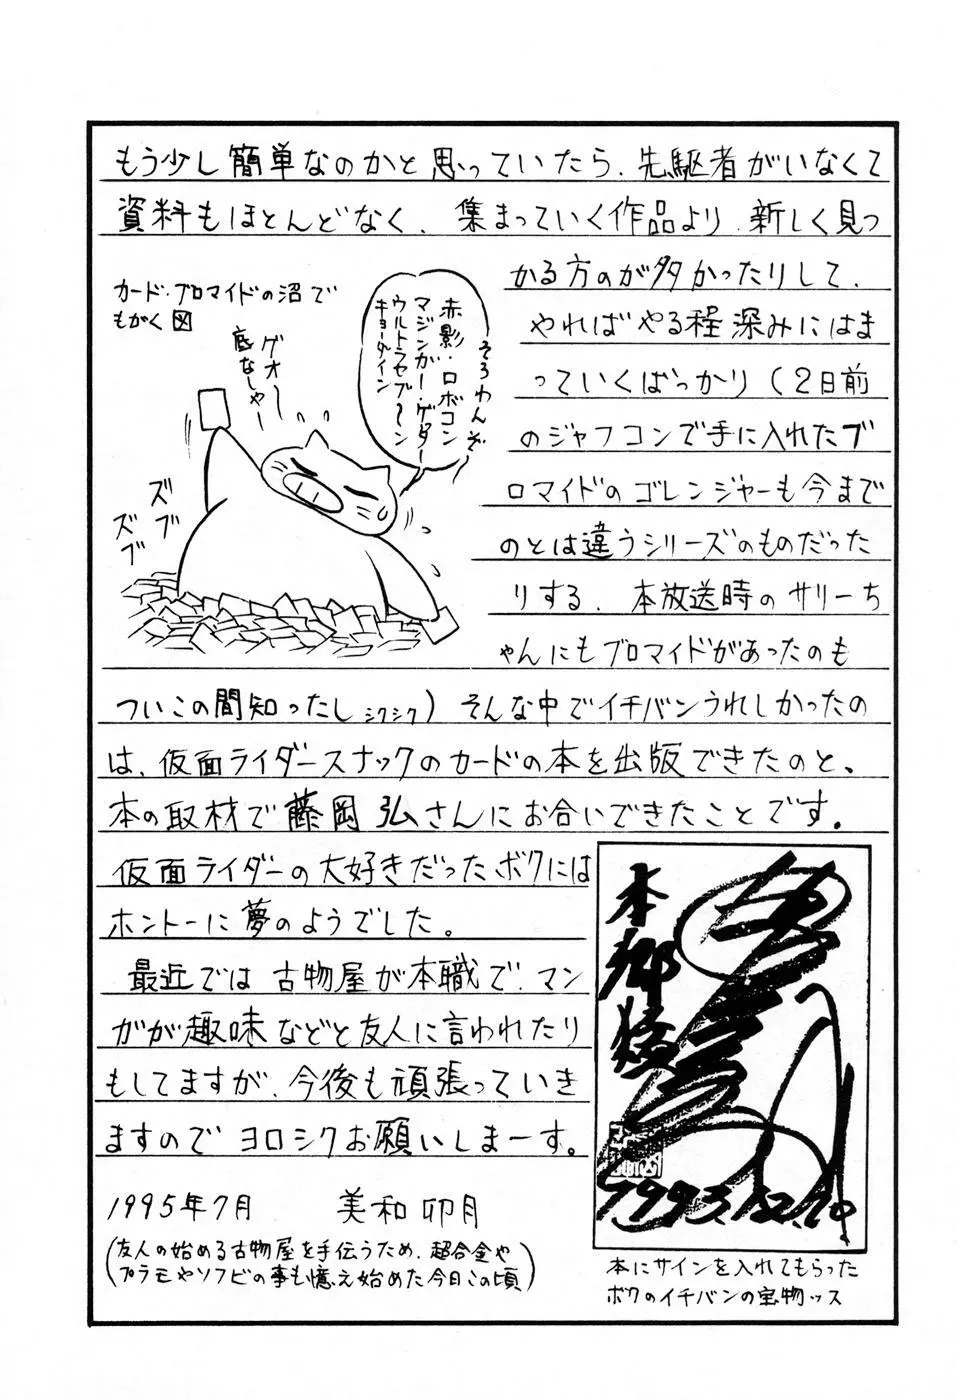 もう少し簡単なのかと思っていたら、先駆者がいなくて
資料もほとんどなく、集まっていく作品より、新しく見つ
かる方のが多かったりして、
やればやる程深みにはま
っていくばっかり(2日前
のジャフコンで手に入れたブ
ロマイドのゴレンジャーも今まで
のとは違うシリーズのものだった
りする、本放送時のサリーち
ゃんにもブロマイドがあったのも
ついこの間知ったし シクシク) そんな中でイチバンうれしかったの
は、仮面ライダースナックのカードの本を出版できたのと、
本の取材で藤岡弘さんにお合いできたことです。
仮面ライダーの大好きだったボクには
ホントーに夢のようでした。
最近では古物屋が本職で、マン
ガが趣味などと友人に言われたり
もしてますが、今後も頑張っていき
ますのでヨロシクお願いしまーす。
1995年7月 美和卯月
(友人の始める古物屋を手伝うため、超合金や
プラモやソフビの事も憶え始めた今日この頃)
カード・ブロマイドの沼で
もがく図
ゲオ〜
底なしゃー
そろわんぞ〜
赤影・ロボコン
マジンガー・ゲッター
ウルトラセブ〜ン
キョーダイン
ズブ
ズブ
本郷猛
1993.12.20
本にサインを入れてもらった
ボクのイチバンの宝物ッス